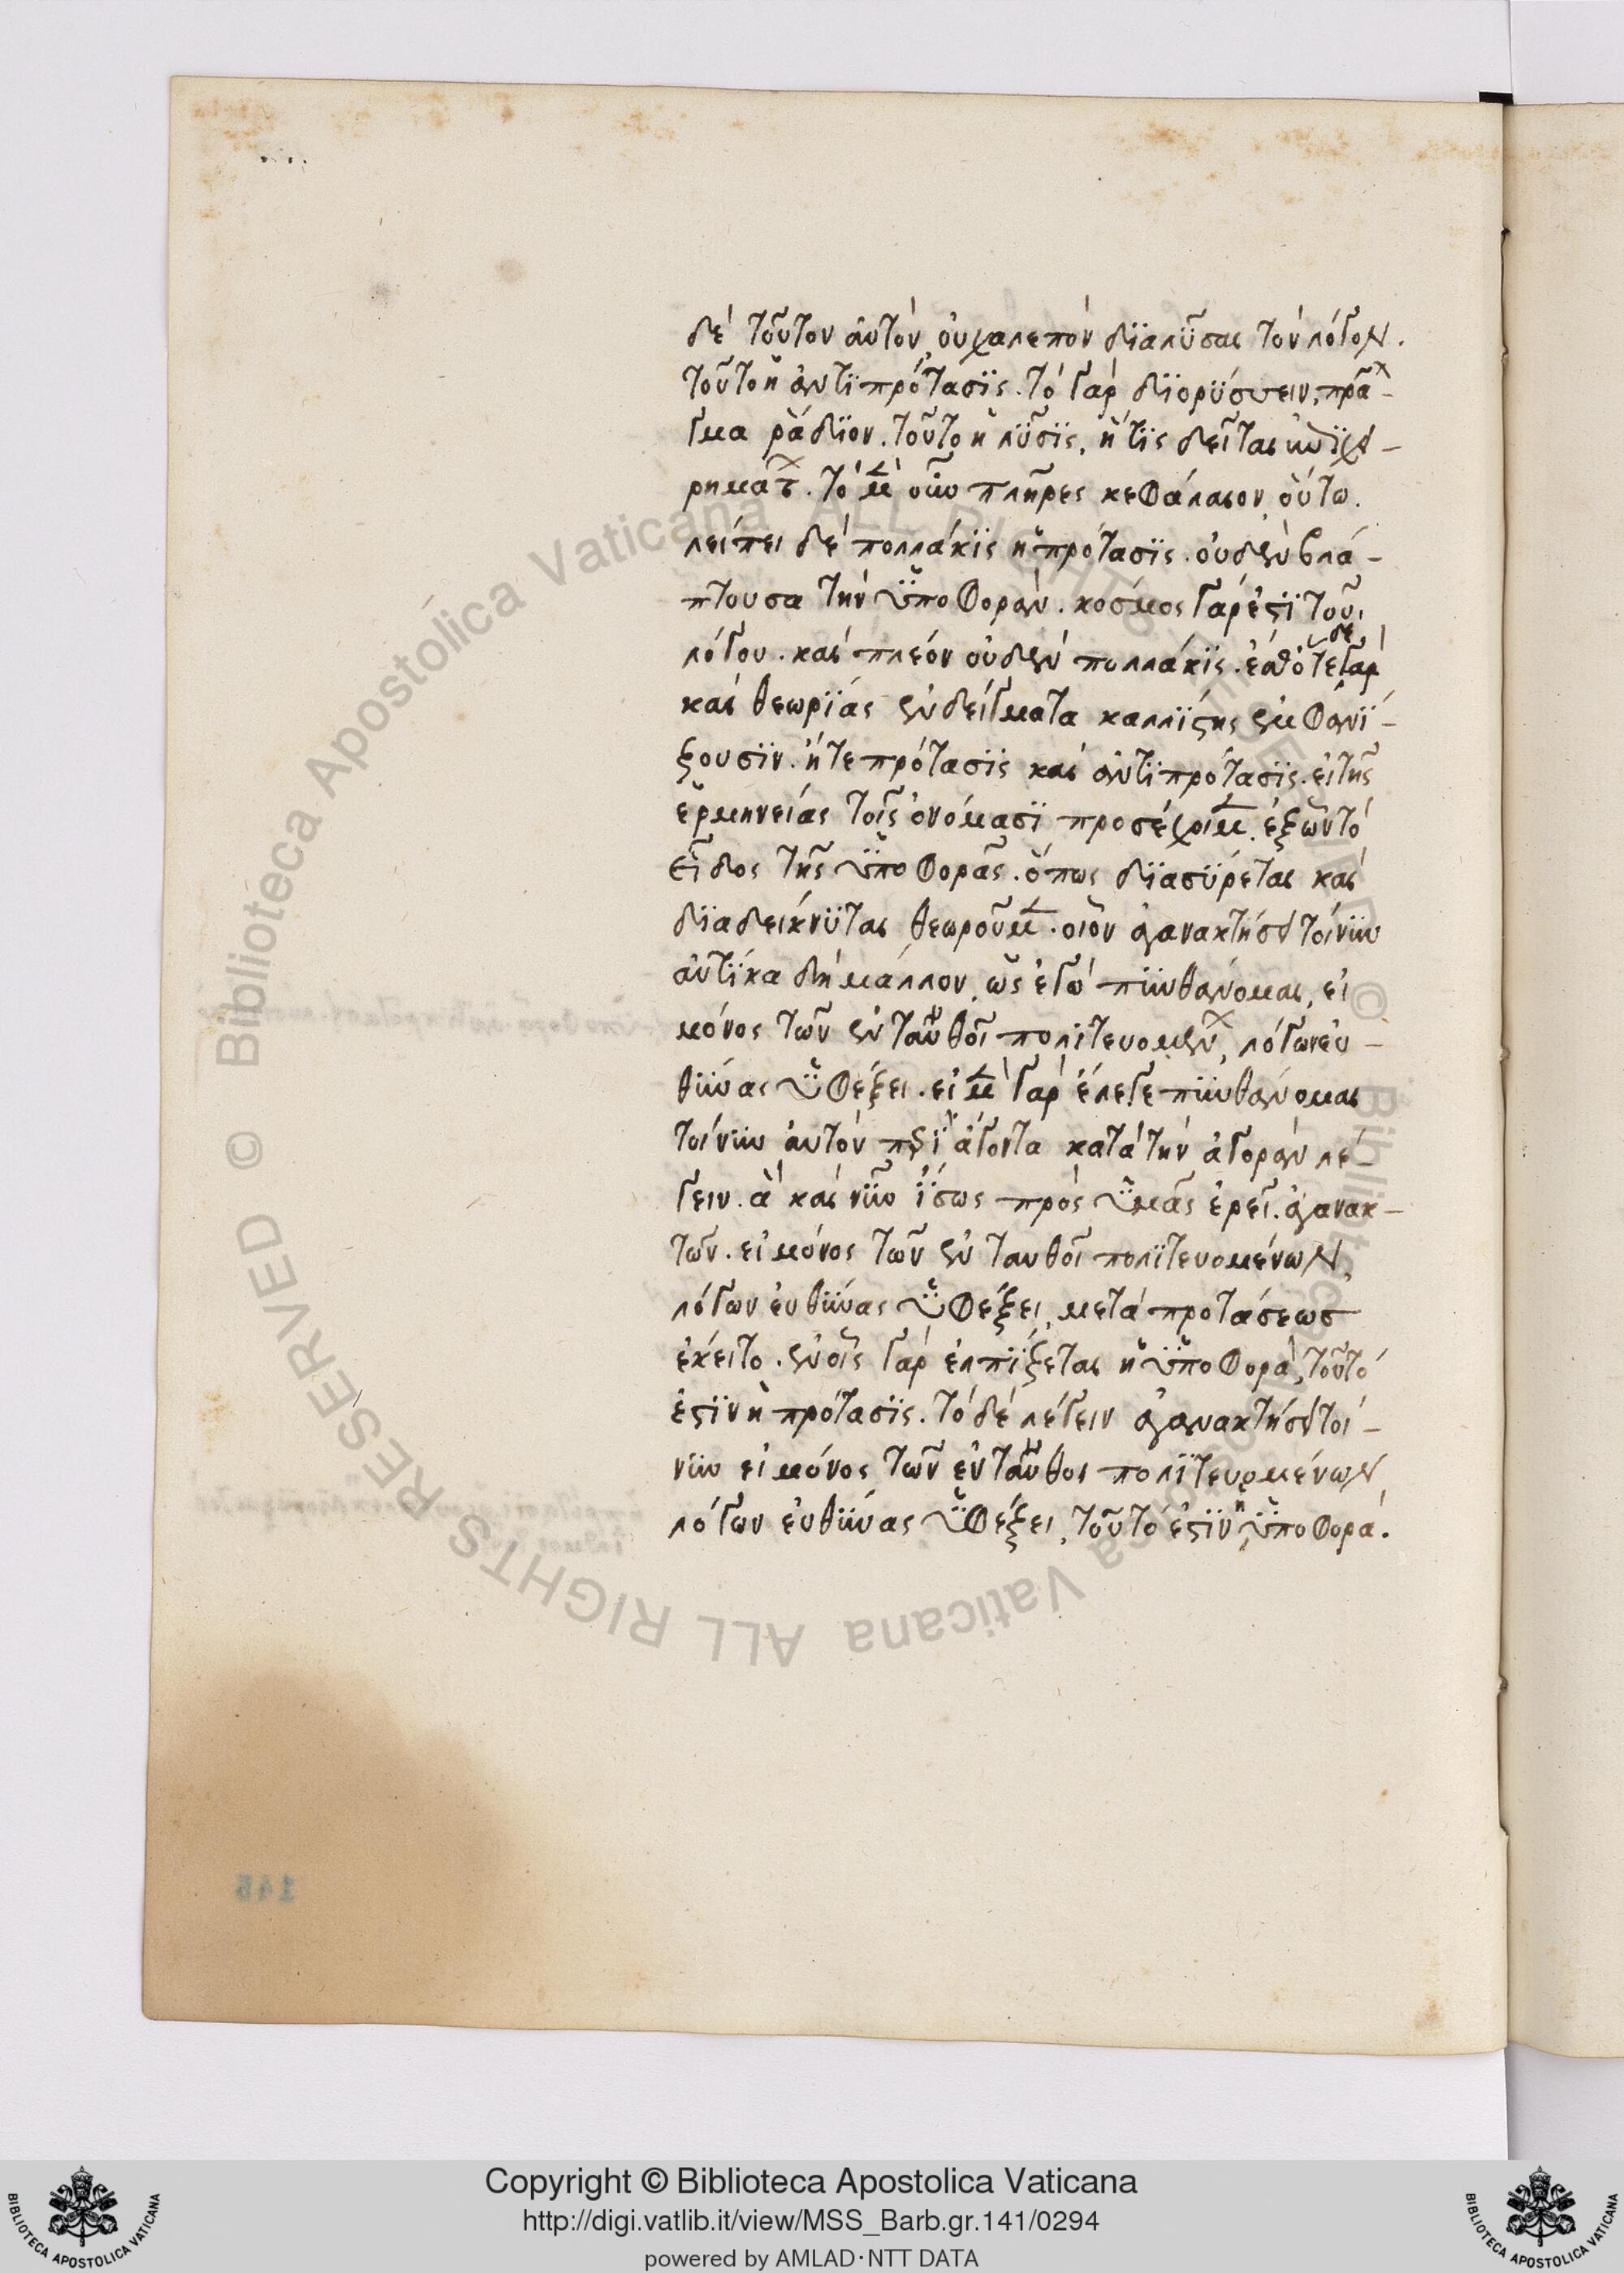 δὲ τοῦτον αὐτὸν, οὐ χαλεπὸν διαλῦσαι τὸν λόγον.
τοῦτο ἡ ἀντιπρότασις. τὸ γὰρ διορύσσειν, πρᾶ-
γμα ῥάδιον. τοῦτο ἡ λύσις, ἥτις δεῖται ἐπιχει-
ρημάτ. τὸ μὲν οὖν πλῆρες κεφάλαιον, οὕτω.
λείπει δὲ πολλάκις ἡ πρότασις. οὐδὲν βλά-
πτουσα τὴν ὑποφοράν. κόσμος γάρ ἐστι τοῦ
λόγου. καὶ πλέον οὐδὲν πολλάκις. ἔσθότε δὲ γὰρ
καὶ θεωρίας ἐνδείγματα καλλίστης ἐμφανί-
ζουσιν. ἥτε πρότασις καὶ ἀντιπρότασις. εἰ τῆς
ἑρμηνείας τοῖς ὀνόμασι προσέχοιμεν. ἐξ ὧν τὸ
εἶδος τῆς ὑποφορᾶς. ὅπως διασύρεται καὶ
διαδείκνυται θεωροῦμεν. οἷον ἀγανακτήσει τοίνυν
αὐτίκα δὴ μάλλον, ὡς ἐγὼ πυνθάνομαι, εἰ
μόνος τῶν ἐνταῦθοῖ πολιτευομέν, λόγων εὐ-
θύνας ὑφέξει. εἰ μὲν γὰρ ἔλεγε πυνθάνομαι
τοίνυν αὐτὸν περιάγοντα κατὰ τὴν ἀγορὰν λέ-
γειν. ἃ καὶ νῦν ἴσως πρὸς ὑμᾶς ἐρεῖ. ἀγανακ-
τῶν. εἰ μόνος τῶν ἐν ταυθοῖ πολιτευομένων,
λόγων εὐθύνας ὑφέξει, μετὰ προτάσεως
ἔκειτο. ἐν οἷς γὰρ ἐλπίζεται ἡ ὑποφορὰ, τοῦτό
ἐστιν ἡ πρότασις. τὸ δὲ λέγειν ἀγανακτήσει τοί-
νυν εἰ μόνος τῶν ἐνταῦθοι πολιτευομένων
λόγων εὐθύνας ὑφέξει, τοῦτό ἐστιν ἡ ὑποφορά.
145
Copyright © Biblioteca Apostolica Vaticana
http://digi.vatlib.it/view/MSS_Barb.gr.141/0294
powered by AMLAD·NTT DATA